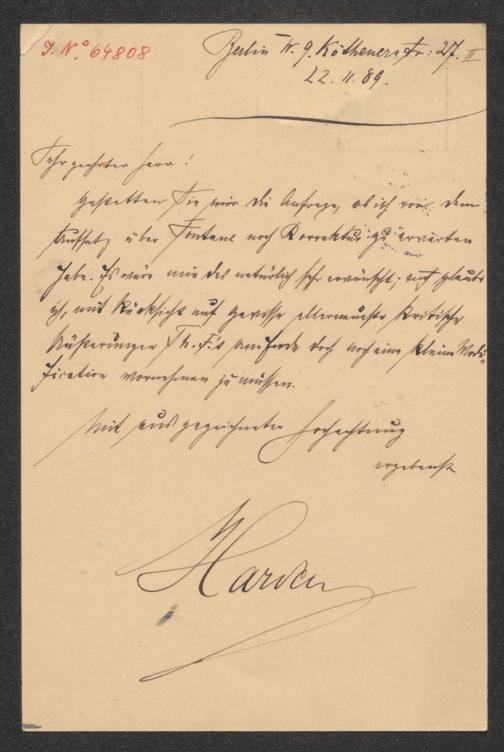 J. N° 64808
Berlin W. 9. Köthenerstr: 27. II
22. 11. 89.
Sehr geehrter Herr!
Gestatten Sie mir die Anfrage, ob ich von dem
Aufsatz über Fontane noch Korrektur zu erwarten
habe. Es wäre mir das natürlich sehr erwünscht; auch glaube
ich, mit Rücksicht auf gewisse allerneueste kritische
Äußerungen Th. F.'s am Ende doch noch eine kleine Modi-
fication vornehmen zu müssen.
Mit ausgezeichneter Hochachtung
ergebenst
Harden